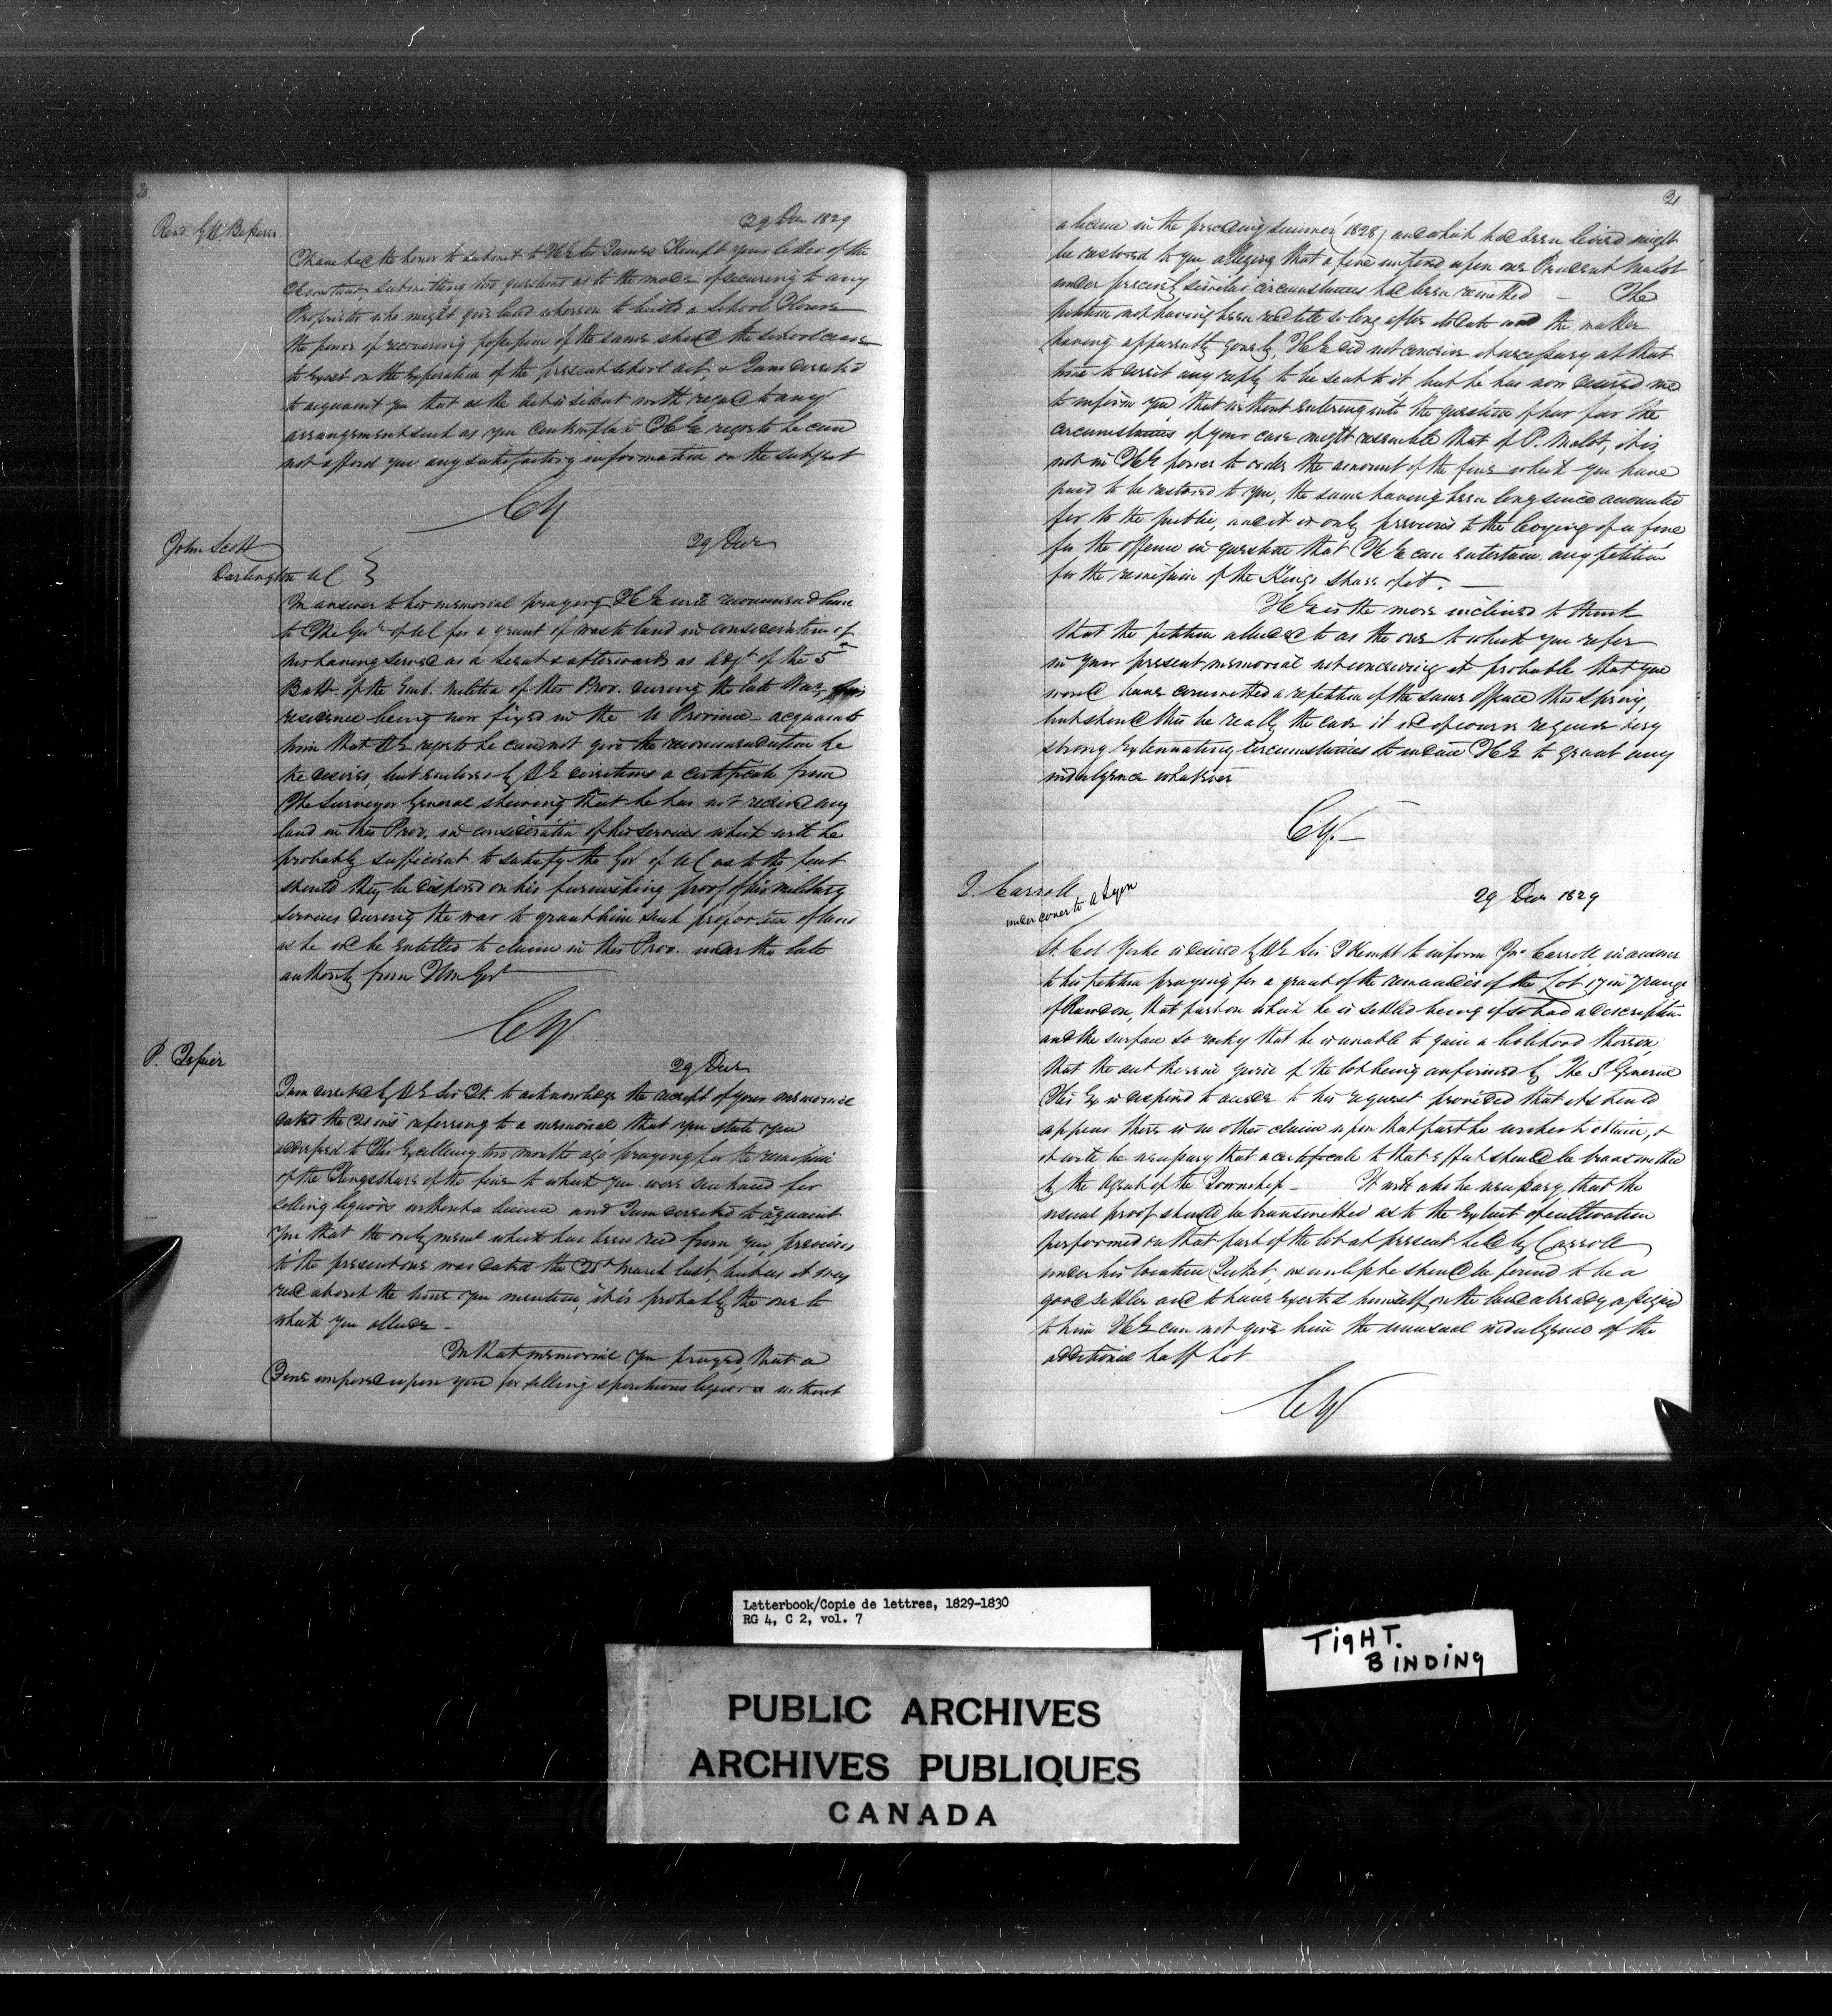 20.
29 Decr 1829
I have had the honor to submit to HE Sir James Kempt your letter of the
instant, submitting two questions as to the mode of securing to any
Proprietor who might give land whereon to build a School House
the power of recovering possession of the same should the school cease
to exist on the expiration of the present school act, & I am directed
to acquaint you that as the Act is silent with regard to any
arrangement such as you contemplate HE regrets he can
not afford you any satisfactory information on the subject
CY
John Scott
Darlington UC }
29 Decr
In answer to his memorial praying HE will recommend him
to The Govr of UC for a grant of waste land in consideration of
his having served as a Serjt & afterwards as Adjt of the 5th
Batt. of the Emb. Militia of this Prov. during the late War, his
residence being now fixed in the U Province - acquaints
him that HE regrets he cannot give the recommendation he
he desires, but encloses by HE directions a certificate from
The Surveyor General shewing that he has not received any
land in this Prov. in consideration of his services which will be
probably sufficient to satisfy the Govt of UC as to the fact
should they be disposed on his furnishing proof of his military
services during the war to grant him such proportion of land
as he wd be entitled to claim in this Prov. under the late
authority from HM Govt
CY
P. Tessier
29 Decr
I am directed by HE Sir JK. to acknowledge the receipt of your memorial
dated the 21 inst referring to a memorial that you state you
addressed to His Excellency two months ago praying for the remission
of the Kings share of the fine to which you were sentenced for
selling liquors without a license and I am directed to acquaint
you that the only meml which has been recd from you, previous
to the present one was dated the 25th March last, but as it was
recd about the time you mention, it is probably the one to
which you allude -
In that memorial you prayed, that a
Fine imposed upon you for selling spirituous liquors without
21
a license in the preceding summer (1828) and which had been levied might
be restored to you alleging that a fine imposed upon one Prudent Malot
under precisely similar circumstances had been remitted - The
petition not having been recd till so long after its date and the matter
having apparently gone by, HE did not conceive it necessary at that
time to direct any reply to be sent to it but he has now desired me
to inform you that without entering into the question of how far the
circumstances of your case might resemble that of P. Malot, it is
not in HE power to order the amount of the fine which you have
paid to be restored to you, the same having been long since accounted
for to the public, and it is only previous to the levying of a fine
for the offence in question that HE can entertain any petition
for the remission of the Kings share of it. -
HE is the more inclined to think
that the petition alluded to as the one to which you refer
in your present memorial not conceiving it probable that you
would have committed a repetition of the same offence this Spring,
but should this be really the case it wd of course require very
strong extenuating circumstances to induce HE to grant any
indulgence whatever
CY. -
J. Carroll
under cover to A Lyon
29 Decr 1829
Lt. Col Yorke is desired by HE Sir J Kempt to inform Jno Carroll in answer
to his petition praying for a grant of the remainder of the Lot 17 in 7 range
of Rawdon, that part on which he is settled being of so bad a description
and the surface so rocky that he is unable to gain a livelihood thereon,
that the of the lot being confirmed by The S. General
His Ex is disposed to accede to his request provided that it should
appear there is no other claim upon that part he wishes to obtain, &
it will be necessary that a certificate to that effect should be transmitted
by the Agent of the Township - It will also be necessary, that the
usual proof should be transmitted as to the extent of cultivation
performed on that part of the lot at present held by Carroll
under his location Ticket, as unless he should be found to be a
good settler and to have exerted himself on the land already assigned
to him HE can not give him the unusual indulgence of the
additional half lot
CY
Letterbook/Copie de lettres, 1829-1830
RG 4, C 2, vol. 7
TIGHT.
BINDING
PUBLIC ARCHIVES
ARCHIVES PUBLIQUES
CANADA